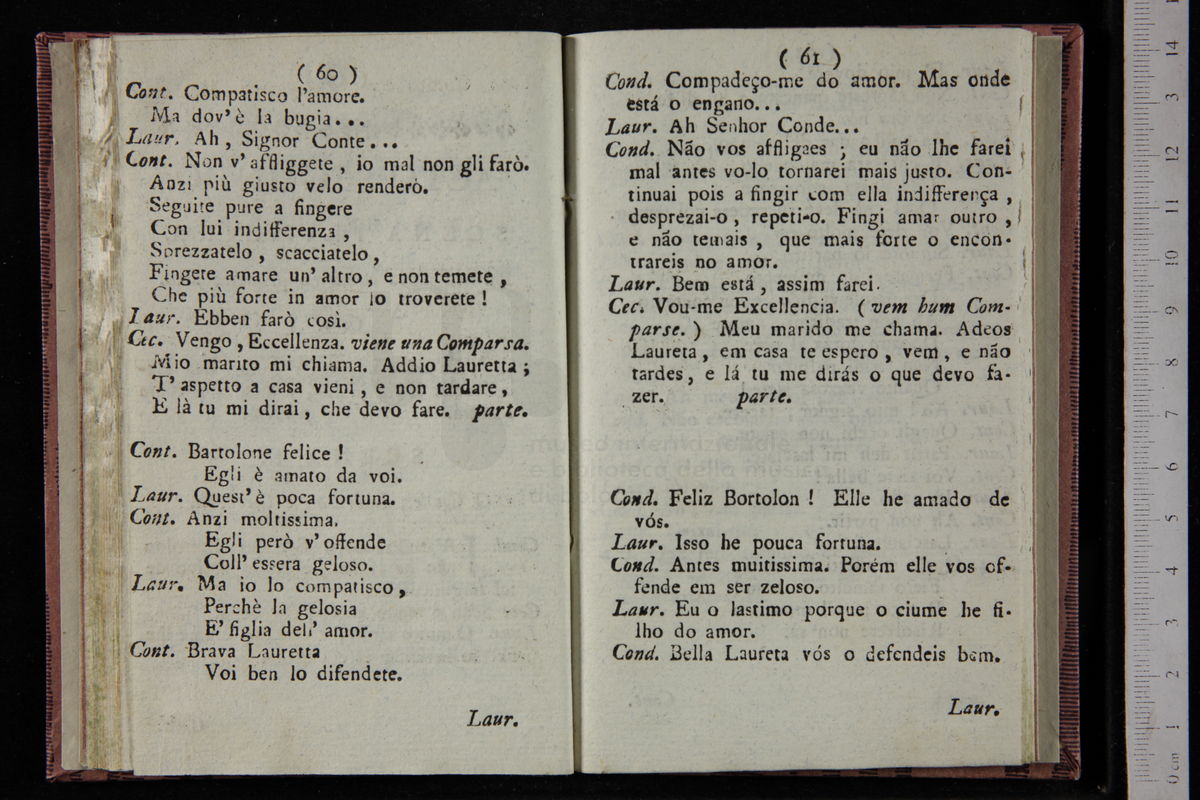 ( 60 )
Cont. Compatisco l'amore.
Ma dov' è la bugia...
Laur. Ah, Signor Conte...
Cont. Non v' affliggete, io mal non gli farò.
Anzi più giusto velo renderò.
Seguite pure a fingere
Con lui indifferenza,
Sprezzatelo, scacciatelo,
Fingete amare un' altro, e non temete,
Che più forte in amor lo troverete!
Laur. Ebben farò così.
Cec. Vengo, Eccellenza. viene una Comparsa.
Mio marito mi chiama. Addio Lauretta;
T' aspetto a casa vieni, e non tardare,
E là tu mi dirai, che devo fare. parte.
Cont. Bartolone felice!
Egli è amato da voi.
Laur. Quest' è poca fortuna.
Cont. Anzi moltissima.
Egli però v' offende
Coll' essera geloso.
Laur. Ma io lo compatisco,
Perchè la gelosia
E' figlia dell' amor.
Cont. Brava Lauretta
Voi ben lo difendete.
Laur.
( 61 )
Cond. Compadeço-me do amor. Mas onde
está o engano...
Laur. Ah Senhor Conde...
Cond. Não vos affligaes; eu não lhe farei
mal antes vo-lo tornarei mais justo. Con-
tinuai pois a fingir com ella indifferença,
desprezai-o, repeti-o. Fingi amar outro,
e não temais, que mais forte o encon-
trareis no amor.
Laur. Bem está, assim farei.
Cec. Vou-me Excellencia. (vem hum Com-
parse.) Meu marido me chama. Adeos
Laureta, em casa te espero, vem, e não
tardes, e lá tu me dirás o que devo fa-
zer. parte.
Cond. Feliz Bortolon! Elle he amado de
vós.
Laur. Isso he pouca fortuna.
Cond. Antes muitissima. Porém elle vos of-
fende em ser zeloso.
Laur. Eu o lastimo porque o ciume he fi-
lho do amor.
Cond. Bella Laureta vós o defendeis bem.
Laur.
museo internazionale
e biblioteca della musica
di bologna
14
13
12
11
10
9
8
7
6
5
4
3
2
1
0 cm